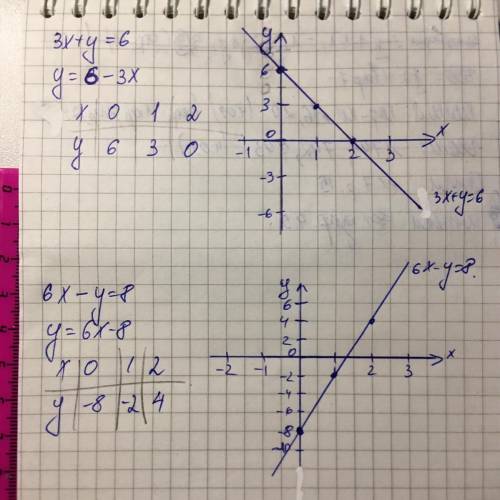 3x+y=6
y=6-3x
x 0 1 2
y 6 3 0
y
6
3
0
x
-1 1 2 3
-3
-6
3x+y=6
6x-y=8
y=6x-8
x 0 1 2
y -8 -2 4
6x-y=8.
y
6
4
2
0
x
-2 -1 1 2 3
-2
-4
-6
-8
-10